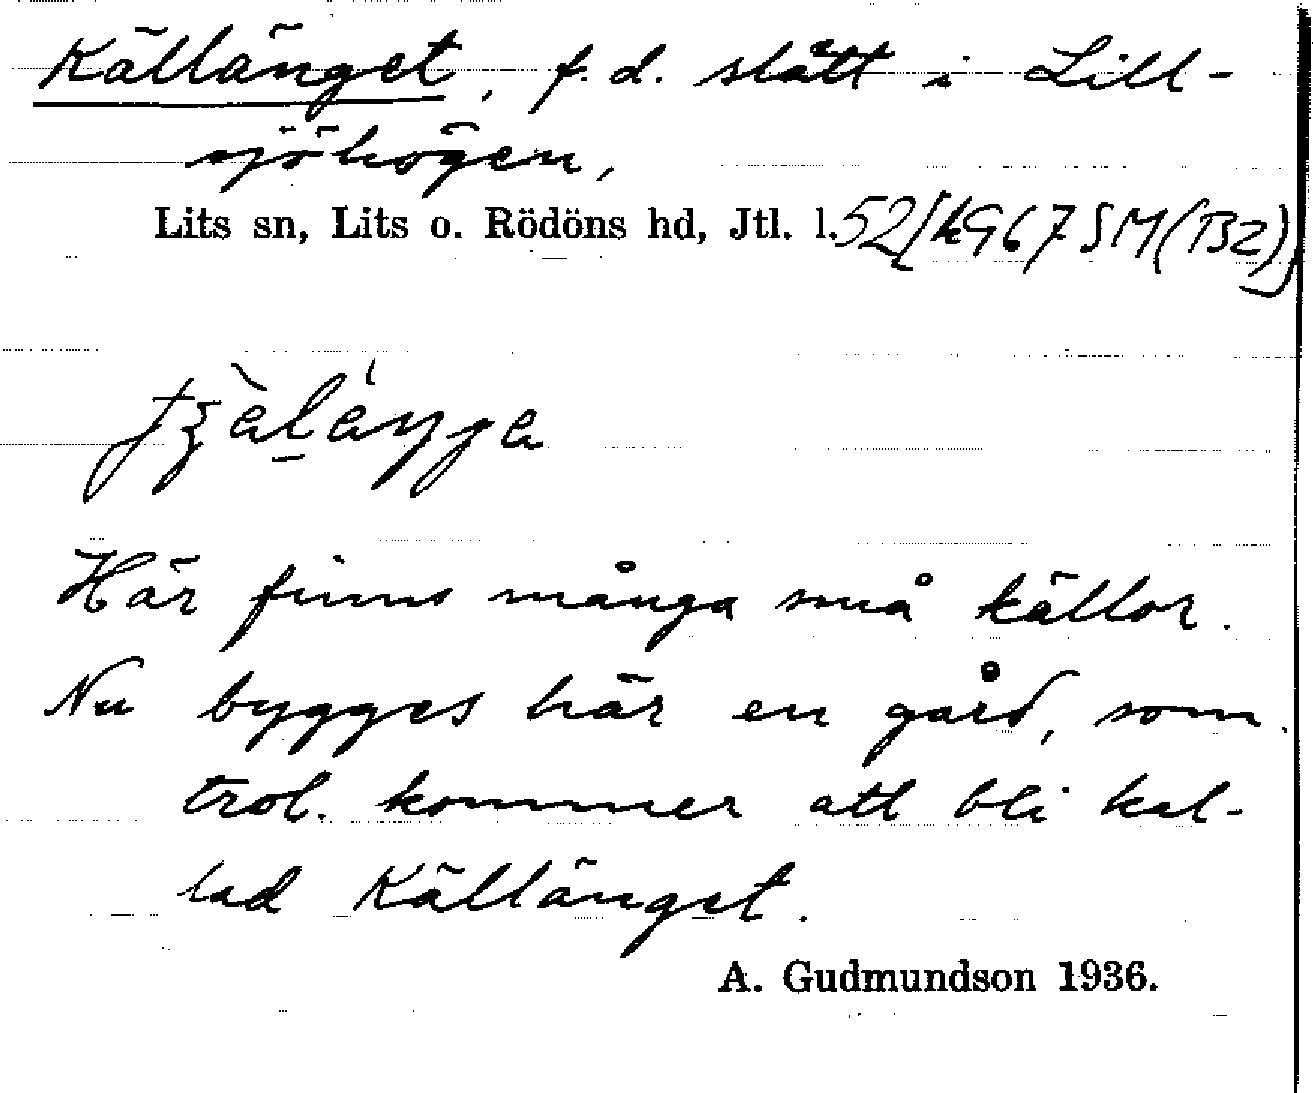 Källänget, f.d. slått i Lill-
sjöhögen,
Lits sn, Lits o. Rödöns hd, Jtl. l.
Här finns många små källor.
Nu bygges här en gård, som
trol. kommer att bli kal-
lad Källänget.
A. Gudmundson 1936.